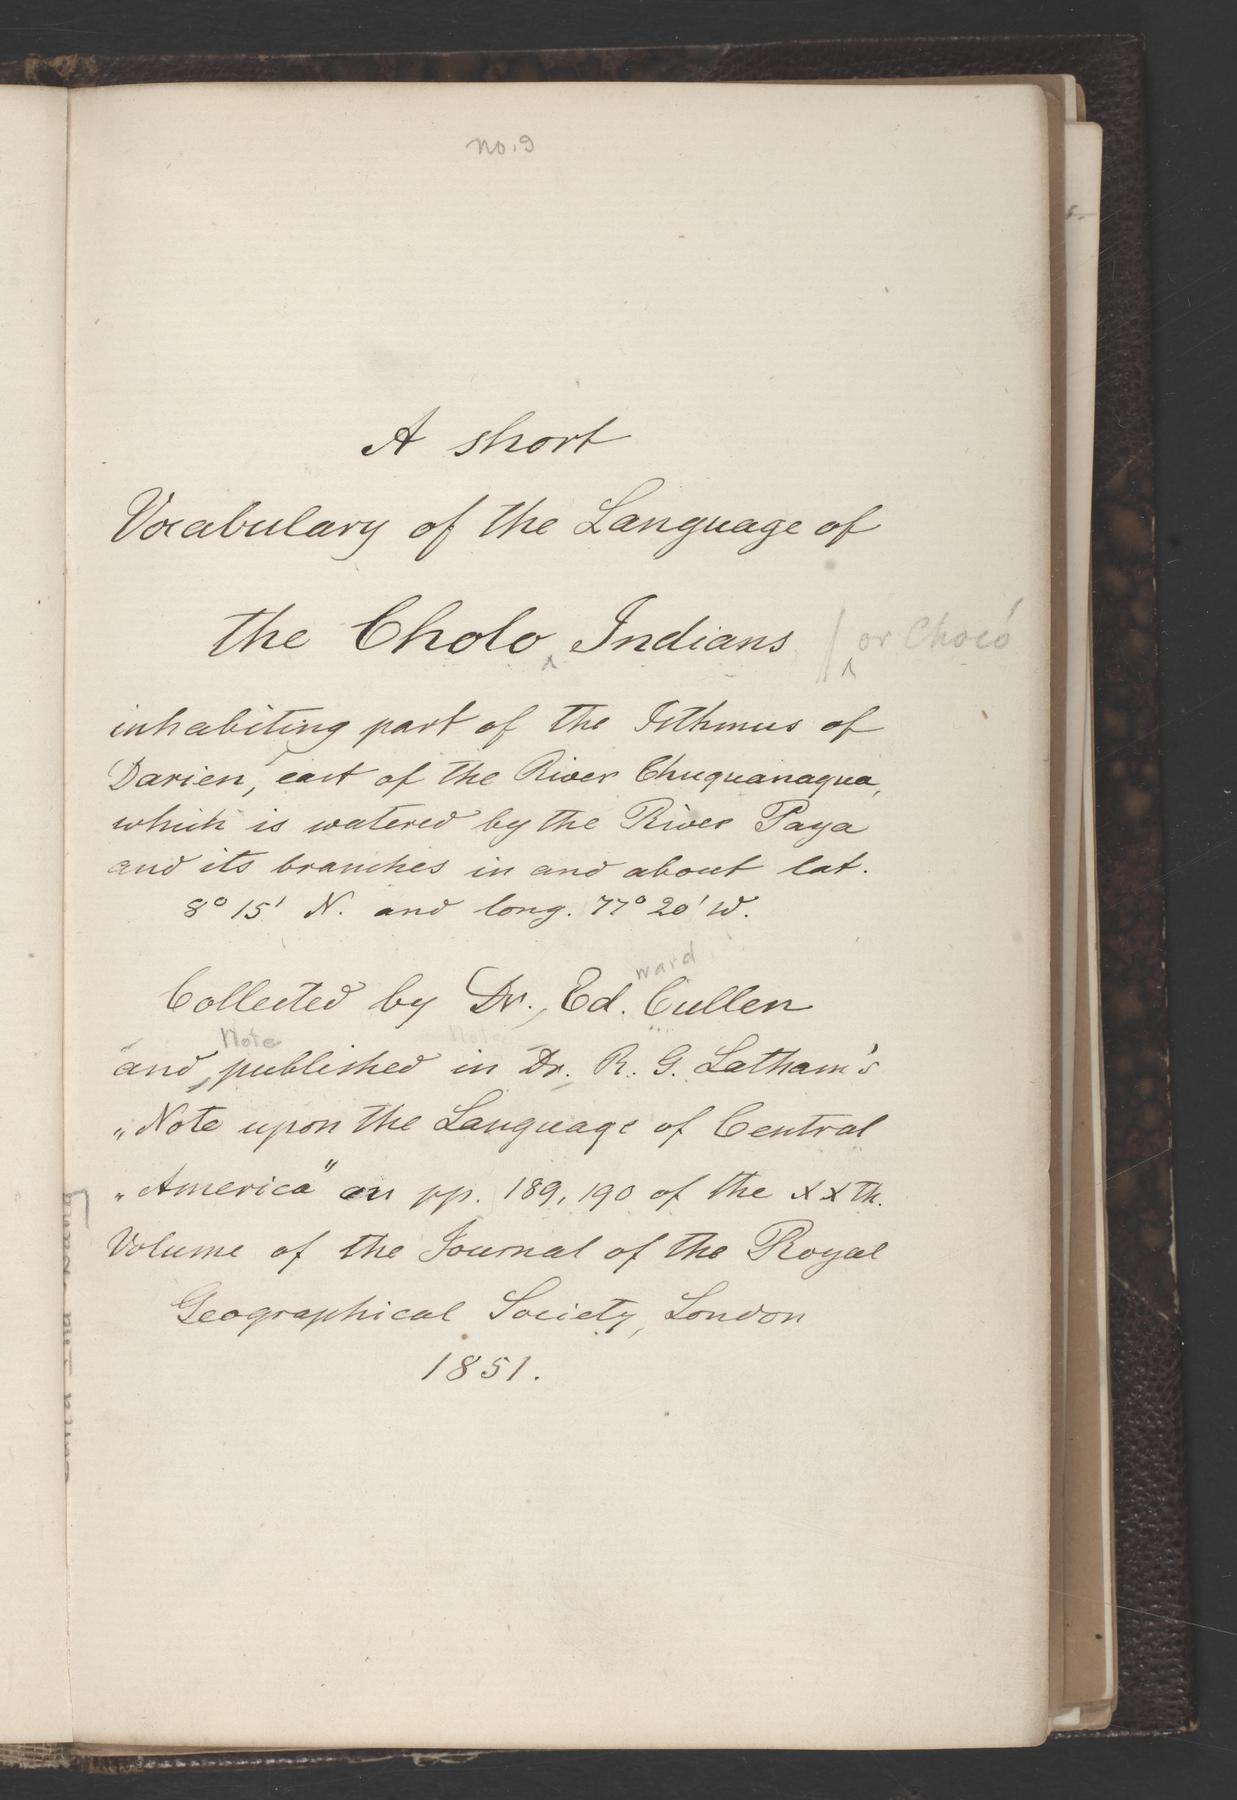 no. 9
A short
Vocabulary of the Language of
the Cholo ‸ Indians / ‸ or Chocó
inhabiting part of the Isthmus of
Darien, east of the River Chuquanaqua,
which is watered by the River Paya
and its branches in and about lat.
8° 15' N. and long. 77° 20' W.
ward
Collected by Dr. Ed. Cullen
Note
and, published in Dr. R. G. Latham's
„Note upon the Language of Central
„America" on pp. 189, 190 of the XXth.
Volume of the Journal of the Royal
Geographical Society, London
1851.